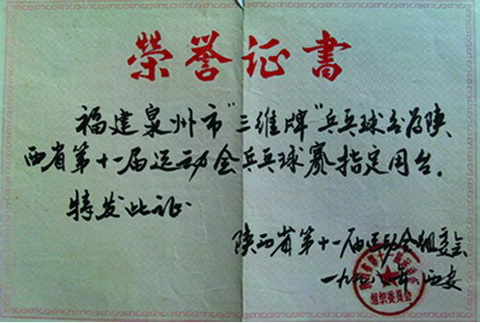 荣誉证書
福建泉州市"三维牌"乒乓球台为陕
西省第十一届运动会乒乓球赛指定用台。
特发此证
陕西省第十一届运动会组委会
组织委员会
一九 年 西安